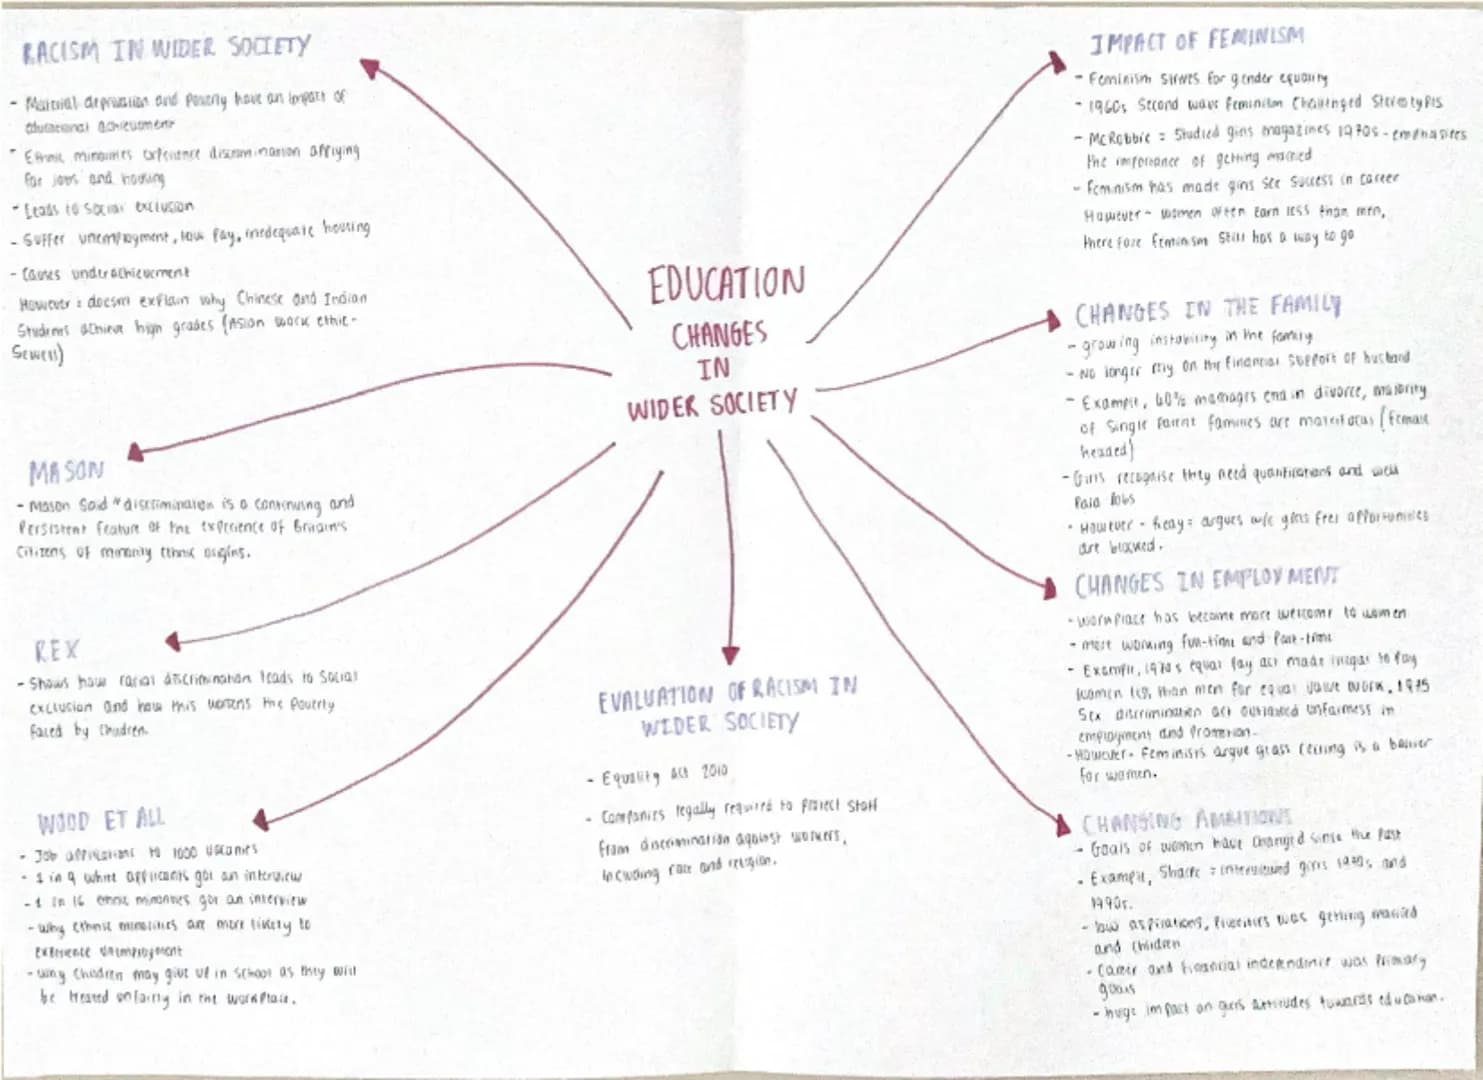 RACISM IN WIDER SOCIETY
- Material deprivation and Poverty have an impact of
educational achievement
- Ethnic minorities experience discrimination applying
for jobs and housing
- Leads to social exclusion
- Suffer unemployment, low pay, inadequate housing
- Causes underachievement
However: doesnt explain why Chinese and Indian
Students achieve high grades (Asian work ethic -
Sewell)
MASON
- Mason Said "discrimination is a continuing and
Persistent feature of the experience of Britain's
Citizens of minority ethnic origins.
REX
- Shows how racial discrimination leads to social
exclusion and how this worsens the Poverty
faced by Children.
WOOD ET ALL
- Job applications to 1000 vacancies
- 1 in 9 white applicants got an interview
- 1 in 16 ethnic minorities got an interview
- why ethnic minorities are more likely to
experience unemployment
- why Children may give up in school as they will
be treated unfairly in the workplace.
EDUCATION
CHANGES
IN
WIDER SOCIETY
EVALUATION OF RACISM IN
WIDER SOCIETY
- Equality act 2010
- Companies legally required to Protect staff
from discrimination against workers,
Including race and religion.
IMPACT OF FEMINISM
- Feminism strives for gender equality
- 1960s Second wave feminism Challenged Stereotypes
- McRobbie = Studied girls magazines 1970s - emphasises
the importance of getting married
- feminism has made girls see success in career
However - women often earn less than men,
therefore feminism still has a way to go
CHANGES IN THE FAMILY
- growing instability in the family
- No longer rely on the financial support of husband
- Example, 40% marriages end in divorce, majority
of Single Parent families are matrifocal (female
headed)
- Girls recognise they need qualifications and well
Paid Jobs
- However - Reay = argues w/c girls feel opportunities
are blocked.
CHANGES IN EMPLOYMENT
- workplace has become more welcome to women
- more working full-time and Part-time
- Example, 1970s equal pay act made illegal to pay
women less than men for equal value work, 1975
Sex discrimination act outlawed unfairness in
employment and Promotion.
- However - Feminists argue glass ceiling is a barrier
for women.
CHANGING AMBITIONS
- Goals of women have changed since the past
- Example, Sharpe = interviewed girls 1970s and
1990s.
- low aspirations, Priorities was getting married
and children
- Career and financial independence was Primary
goals
- huge impact on girls attitudes towards education.